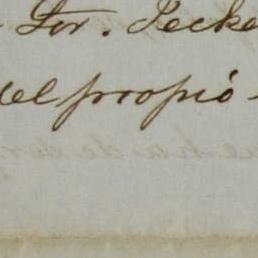 Sor. Pecke
del propió